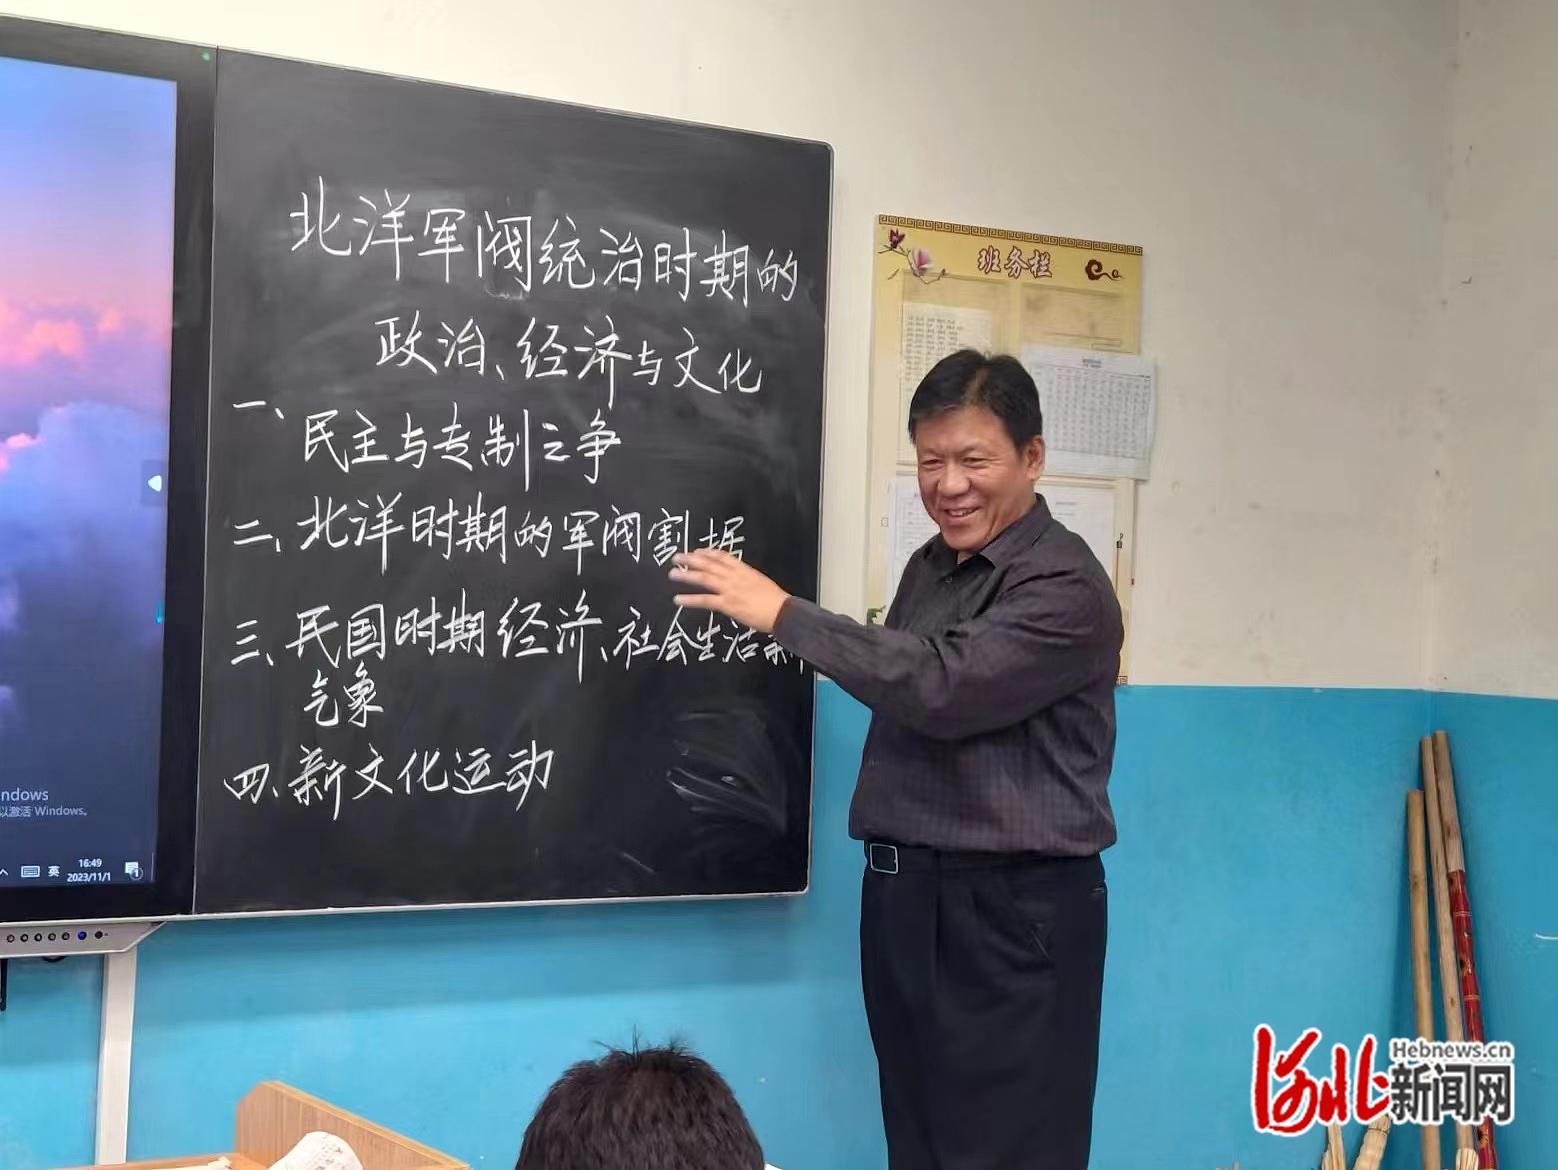 北洋军阀统治时期的
政治、经济与文化
一、
民主与专制之争
二、北洋时期的军阀割据
三、民国时期经济、社会生活新
气象
四、新文化运动
班务栏
ndows
以激活 Windows。
英
16:49
2023/11/1
1
河北新闻网
Hebnews.cn